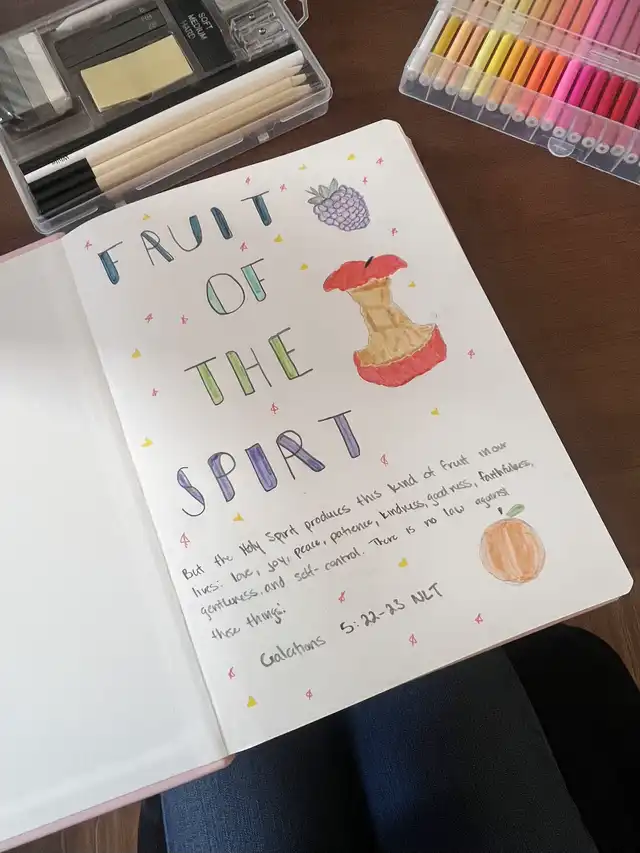 SOFT
MEDIUM
HARD
FRUIT
OF
THE
SPIRT
But the Holy Spirit produces this kind of fruit in our
lives: love, joy, peace, patience, kindness, goodness, faithfulness,
gentleness, and self-control. There is no law against
these things!
Galations 5:22-23 NLT